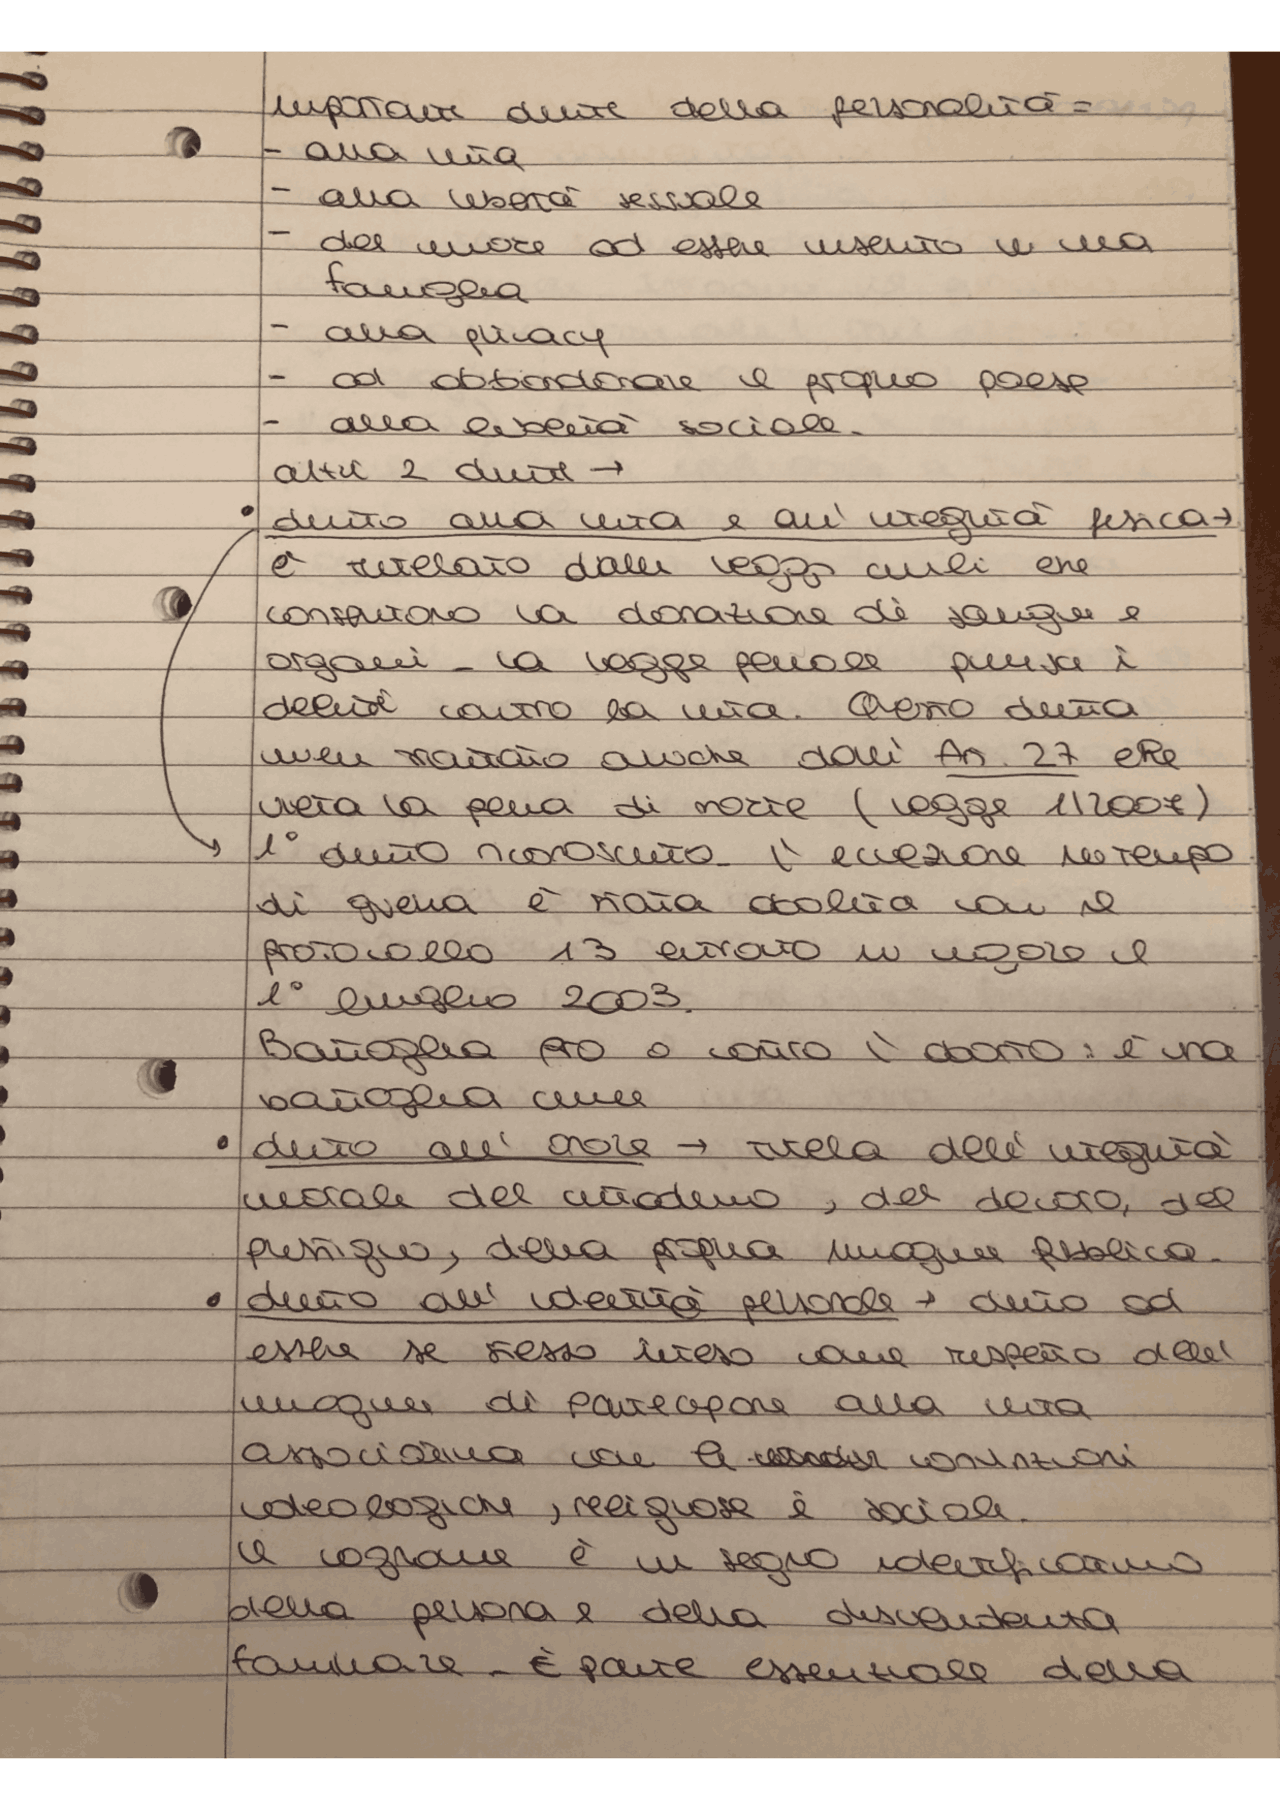 importanti diritti della personalità =
- alla vita
- alla libertà sessuale
- del minore ad essere inserito in una
famiglia
- alla privacy
- ad abbandonare il proprio paese
- alla libertà sociale.
altri 2 diritti →
• diritto alla vita e all'integrità fisica →
è tutelato dalle leggi civili che
consentono la donazione di sangue e
organi - la legge penale punisce i
delitti contro la vita. Questo diritto
viene trattato anche dall' Ar. 27 che
vieta la pena di morte (legge 1/2007)
1° diritto riconosciuto. L'eccezione in tempo
di guerra è stata abolita con il
protocollo 13 entrato in vigore il
1° luglio 2003.
Battaglia pro o contro l'aborto: è una
battaglia civile
• diritto all'onore → tutela dell'integrità
morale del cittadino, del decoro, del
prestigio, della propria immagine pubblica.
• diritto all'identità personale → diritto ad
essere se stesso inteso come rispetto dell'
immagine di partecipare alla vita
associativa con le convinzioni
ideologiche, religiose e sociali.
il cognome è un segno identificativo
della persona e della discendenza
familiare - È parte essenziale della